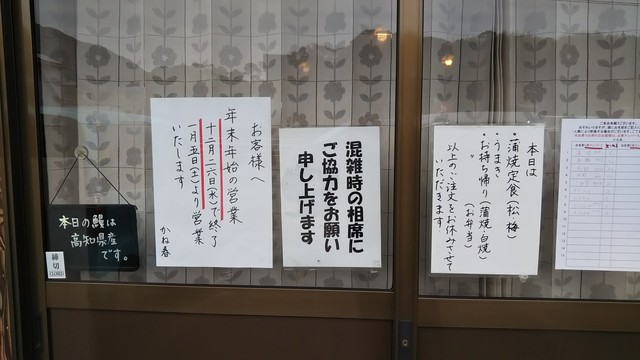 本日の鰻は
高知県産
です。
締切
お客様へ
年末年始の営業
十二月二六日(水)で終了
一月五日(土)より営業
いたします
かね春
混雑時の相席に
ご協力をお願い
申し上げます
本日は
・蒲焼定食(松、梅)
・うまき
・お持ち帰り(蒲焼・白焼)
(お弁当)
以上のご注文をお休みさせて
いただきます